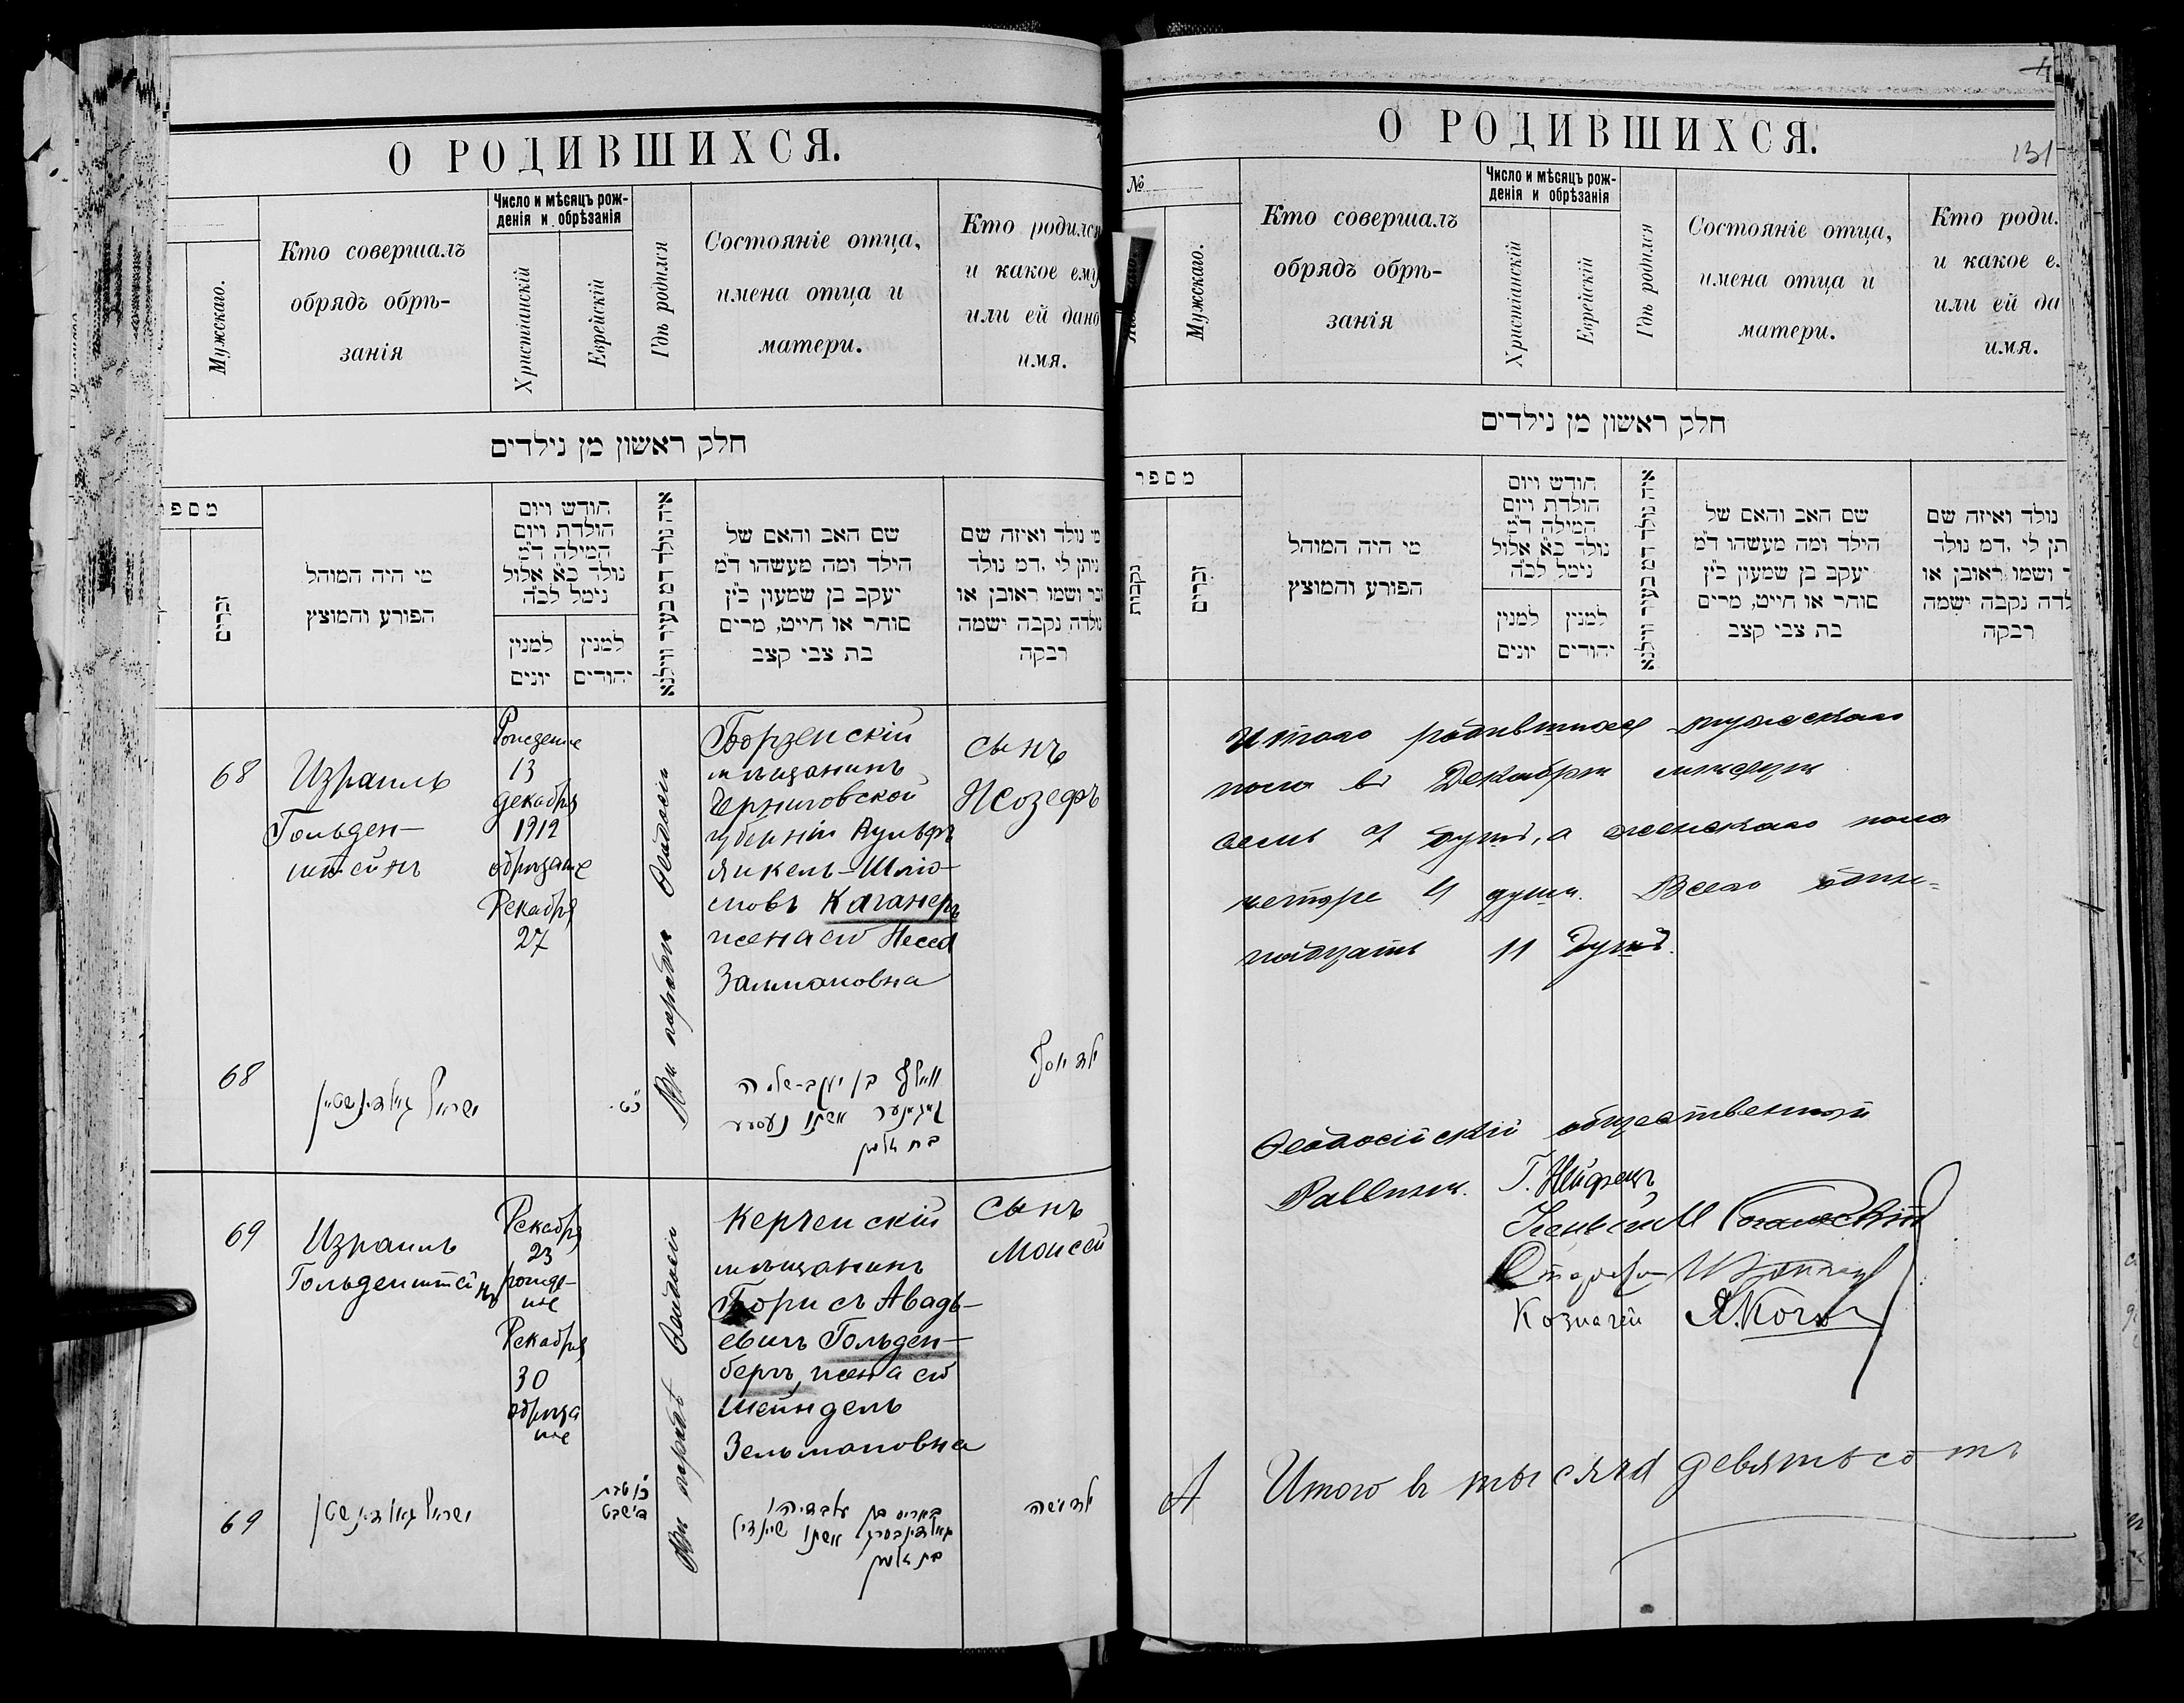 О РОДИВШИХСЯ.
Мужскаго.
Кто совершалъ
обрядъ обрѣ-
занія
Число и мѣсяцъ рож-
денія и обрѣзанія
Христіанскій
Еврейскій
Гдѣ родился
Состояніе отца,
имена отца и
матери.
Кто родился
и какое ему
или ей дано
имя.
חלק ראשון מן נילדים
זכרים
מי היה המוהל
הפורע והמוצץ
חודש ויום
הולדת ויום
המילה ד״מ
נולד כ״א אלול
נימל לכ״ה
למנין
יונים
למנין
יהודים
איה נולד דמ בעיר ווילנא
שם האב והאם של
הילד ומה מעשהו ד״מ
יעקב בן שמעון כ״ץ
סוחר או חייט, מרים
בת צבי קצב
מי נולד ואיזה שם
ניתן לו, דמ נולד
ושמו ראובן או
נולדה נקבה ישמה
רבקה
68
Израиль
Гольден-
штейнъ
13
декабря
1912
обрѣзаніе
Декабря
27
Феодосіи
Борзенскій
мѣщанинъ
Черниговской
губерніи Вульфъ
Янкель-Шлio-
мовъ Каганеръ
жена его Несса
Залмановна
сынъ
Иозефъ
68
ישראל גאלדענשטיין
אשתו נעסע
ילד יוסף
69
Израиль
Гольденштейнъ
Декабря
23
рожде-
ніе
Декабря
30
обрѣза
ніе
Феодосіи
Керченскій
мѣщанинъ
Борисъ Авадь-
евичъ Гольден-
бергъ, жена его
Шейндель
Зельмановна
сынъ
Моисей
69
ישראל גאלדענשטיין
ילד משה
О РОДИВШИХСЯ.
131
№
Мужскаго.
Кто совершалъ
обрядъ обрѣ-
занія
Число и мѣсяцъ рож-
денія и обрѣзанія
Христіанскій
Еврейскій
Гдѣ родился
Состояніе отца,
имена отца и
матери.
Кто роди
и какое е
или ей да
имя.
חלק ראשון מן נילדים
מספר
נקבות
זכרים
מי היה המוהל
הפורע והמוצץ
חודש ויום
הולדת ויום
המילה ד״מ
נולד כ״א אלול
נימל לכ״ה
למנין
יונים
למנין
יהודים
איה נולד דמ בעיר ווילנא
שם האב והאם של
הילד ומה מעשהו ד״מ
יעקב בן שמעון כ״ץ
סוחר או חייט, מרים
בת צבי קצב
נולד ואיזה שם
תן לי, דמ נולד
ושמו ראובן או
לדה נקבה ישמה
רבקה
Итого родившихся мужскаго
пола въ Декабрѣ мѣсяцѣ
семь 7 душъ, а женскаго пола
четыре 4 души. Всего один-
надцать 11 душъ.
Феодосійскій общественный
Раввинъ. Г. Нейфецъ
Козначей Я. Коген
Итого въ тысяча девятьсотъ